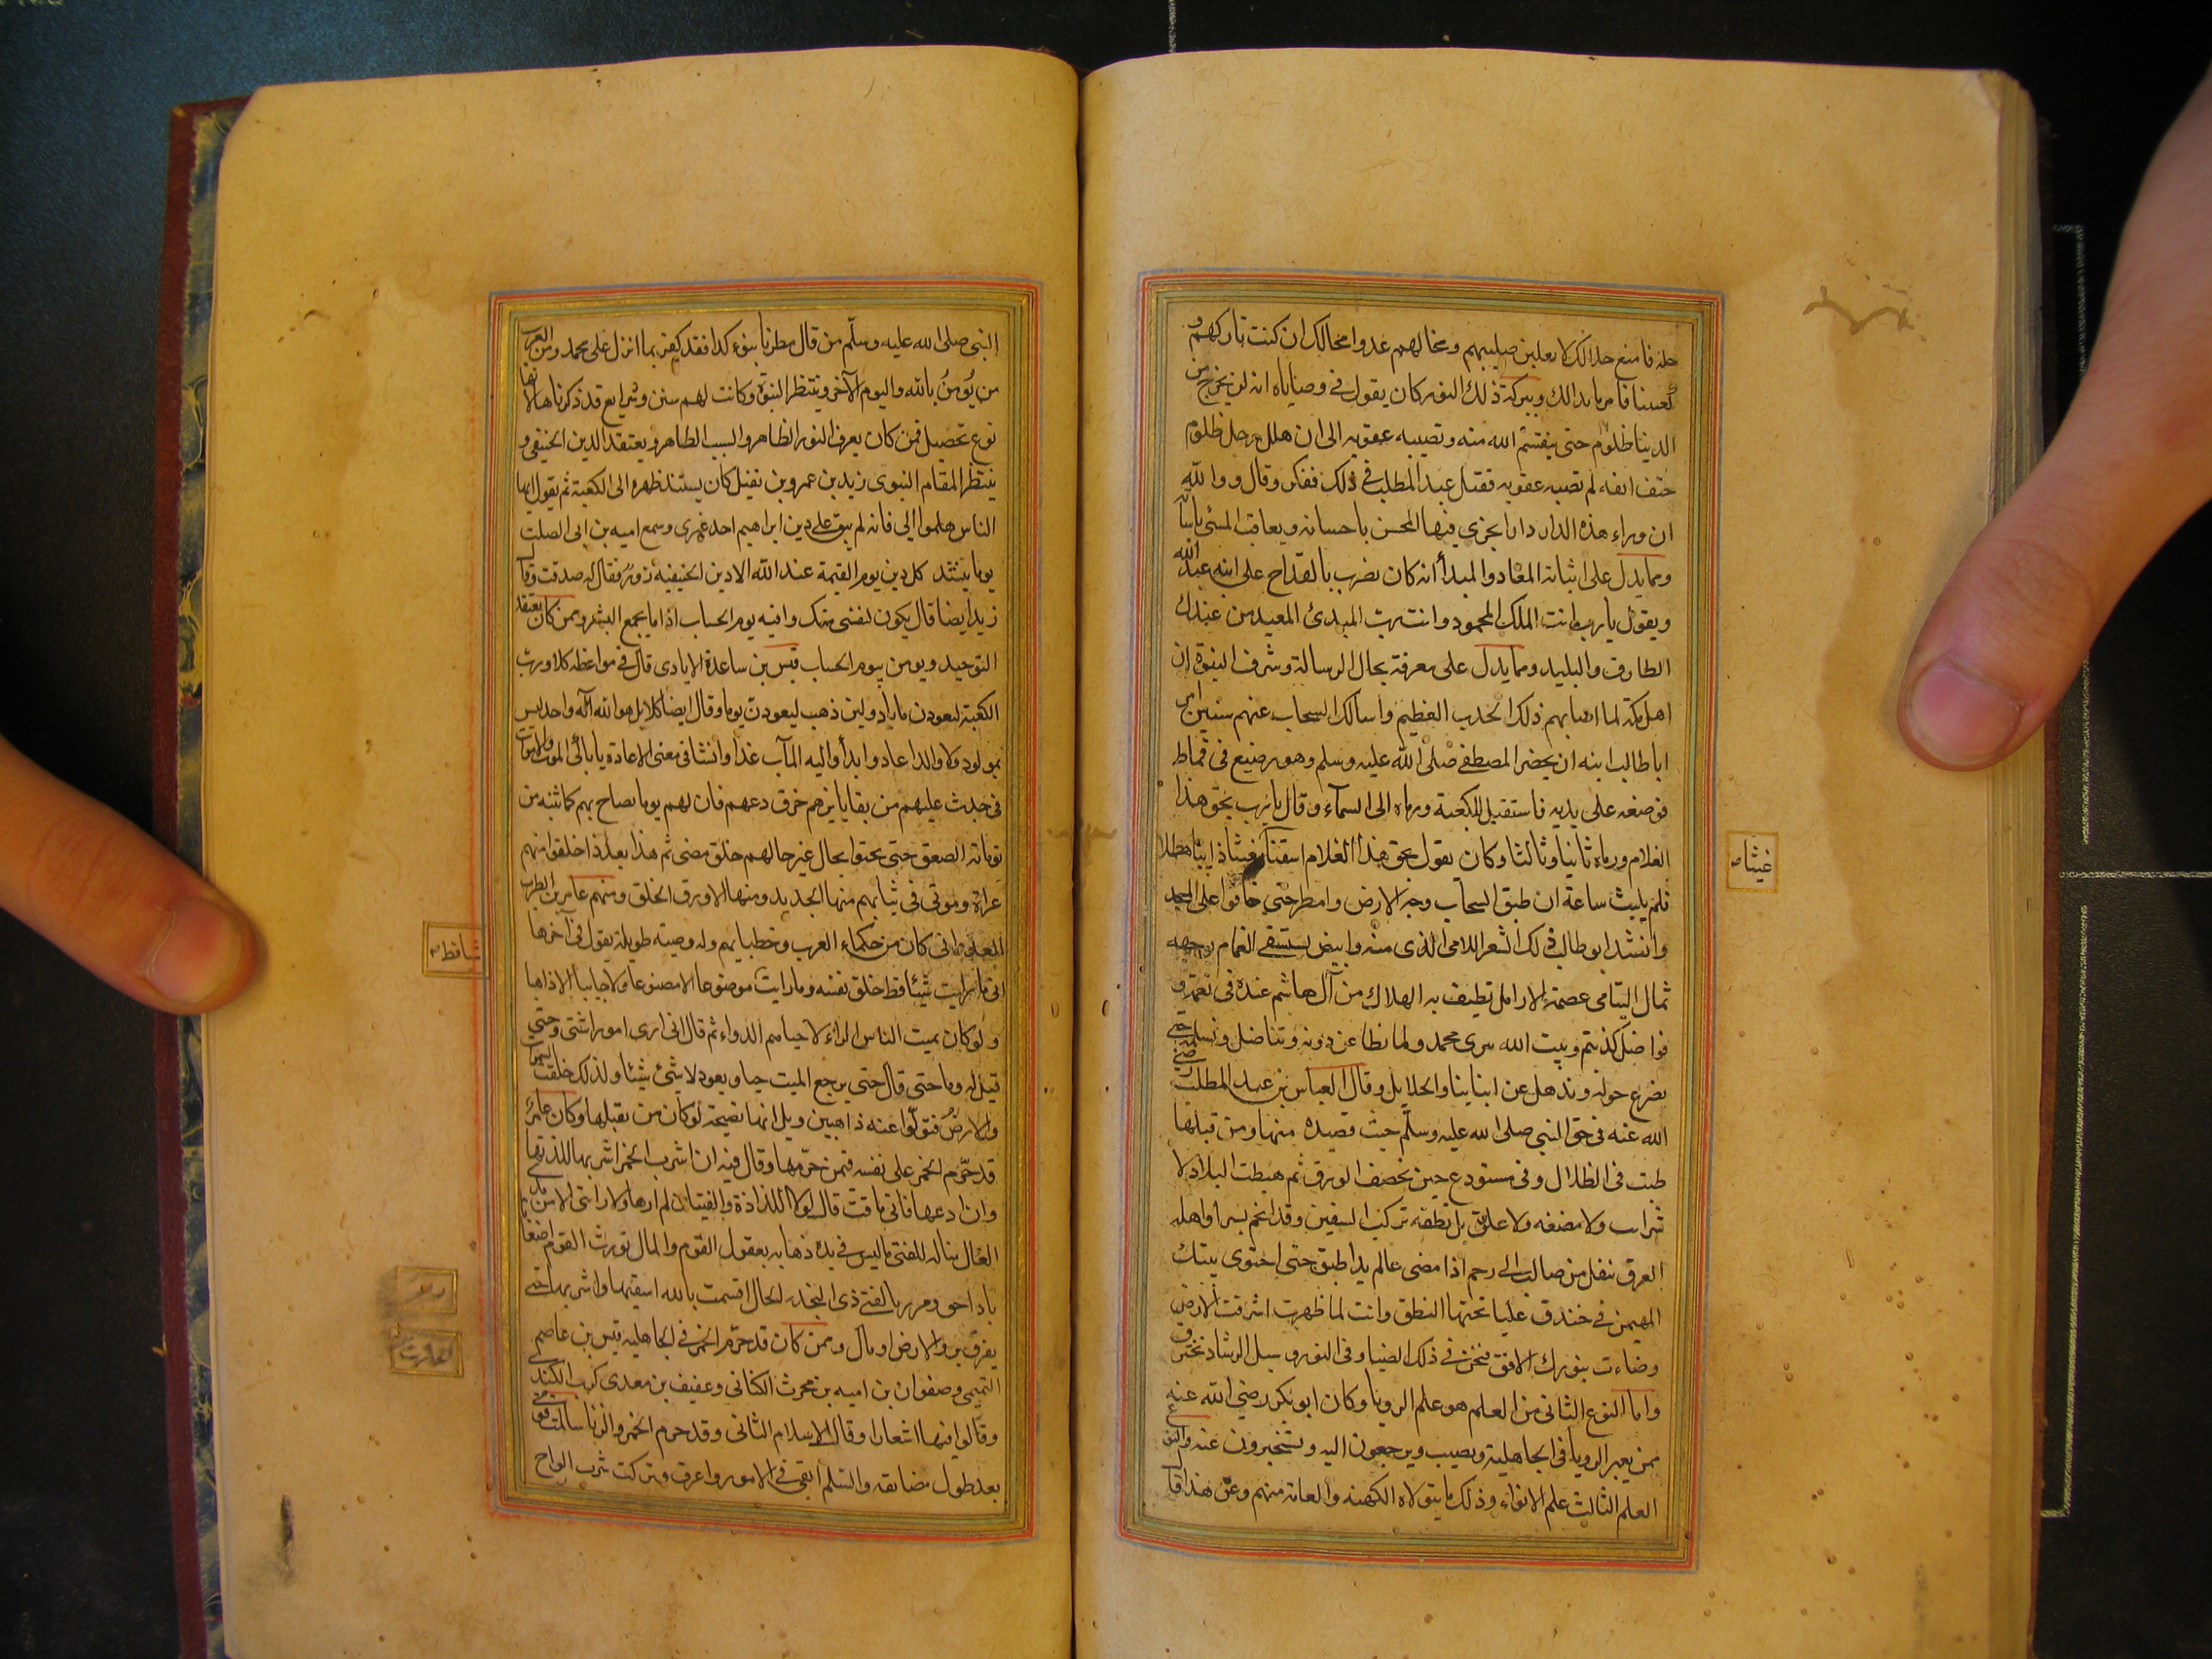 حله فامنع حلالك لا يغلبن صليبهم ومحالهم عدوا محالك ان كنت تاركهم و
كعبتنا فامر ما بدا لك وببركة ذلك النور كان يقول في وصاياه انه لن يخرج من
الدنيا ظلوم حتى ينتقم الله منه وتصيبه عقوبه الى ان هلك رجل ظلوم
حتف انفه لم تصبه عقوبه فقيل عبد المطلب في ذلك ففكر وقال و والله
ان وراء هذه الدار دارا يجزى فيها المحسن باحسانه ويعاقب المسئ باسائه
ومما يدل على اثباته المعاد والمبدأ انه كان يضرب بالقداح على ابنه عبد الله
ويقول يا رب انت الملك المحمود وانت رب المبدئ المعيد من عندك
الطارف والتليد ومما يدل على معرفته بحال الرسالة وشرف النبوة ان
اهل مكة لما اصابهم ذلك الجدب العظيم وامسك السحاب عنهم سنتين امر
ابا طالب ابنه ان يحضر المصطفى صلى الله عليه وسلم وهو رضيع في قماط
فوضعه على يديه فاستقبل الكعبة ورماه الى السماء وقال يا رب بحق هذا
الغلام ورماه ثانيا وثالثا وكان يقول بحق هذا الغلام اسقنا غيثا دائما هطلا
غيثا ص
فلم يلبث ساعة ان طبق السحاب وجه الارض وامطر حتى خافوا على المسجد
وانشد ابو طالب ذلك الشعر اللامى الذى منه وابيض يستسقى الغمام بوجهه
ثمال اليتامى عصمة الارامل تطيف به الهلاك من آل هاشم عنده في نعمة و
فواضل كذبتم وبيت الله نبرى محمد ولما نطاعن دونه ونناضل ونسلمه حتى
نصرع حوله ونذهل عن ابناينا والحلايل وقال العباس بن عبد المطلب رضى
الله عنه في حق النبي صلى الله عليه وسلم حيث قصيده منها ومن قبلها
طبت في الظلال وفي مستودع حين يخصف الورق ثم هبطت البلاد لا
بشر انت ولا مضغه ولا علق بل نطفه تركب السفين وقد الجم نسرا واهله
الغرق تنقل من صالب الى رحم اذا مضى عالم بدا طبق حتى احتوى بيتك
المهيمن في خندق عليا تحتها النطق وانت لما ظهرت اشرقت الارض
وضاءت بنورك الافق فنحن في ذلك الضياء وفي النور وسبل الرشاد نخترق
واما النوع الثانى من العلم هو علم الرويا وكان ابو بكر رضى الله عنه
ممن يعبر الرويا في الجاهلية ويصيب ويرجعون اليه ويستخبرون عنه والنوع
العلم الثالث علم الانواء وذلك ما يتولاه الكهنه والعافه منهم وعن هذا قا
النبى صلى الله عليه وسلم من قال مطرنا بنوء كذا فقد كفر بما انزل على محمد ومن العرب
من يؤمن بالله واليوم الآخر وينتظر النبوة وكانت لهم سنن وشرايع قد ذكرناها لانها
نوع تحصيل فمن كان يعرف النور الظاهر والنسب الطاهر ويعتقد الدين الحنيفى و
ينتظر المقام النبوى زيد بن عمرو بن نفيل كان يستند ظهره الى الكعبة ثم يقول ايها
الناس هلموا الي فانه لم يبق على دين ابراهيم احد غيرى وسمع اميه بن ابى الصلت
يوما ينشد كل دين يوم القيمة عند الله الا دين الحنيفيه زور فقال له صدقت وقال
زيد ايضا قال يكون لنفسى منك واقيه يوم الحساب اذا ما يجمع البشر وممن كان يعتقد
التوحيد ويومن بيوم الحساب قيس بن ساعدة الايادى قال في مواعظه كلا ورب
الكعبة ليعودن ما باد ولين ذهب ليعودن يوما وقال ايضا كلا بل هو الله اله واحد ليس
بمولود ولا والد اعاد وابدأ واليه المآب غدا وانشا في معنى الاعادة يا باكى الموت والاموات
في جدث عليهم من بقايا بزهم خرق دعهم فان لهم يوما يصاح بهم كما ينبه من
نوماته الصعق حتى يجيئوا بحال غير حالهم خلق مضى ثم هذا بعد ذا خلقوا منهم
عراة وموتى في ثيابهم منها الجديد ومنها الاورق الخلق ومنهم عامر بن الظرب
العدوانى كان من حكماء العرب وخطبايهم وله وصيه طويلة يقول في آخرها
انى ما رايت شيئا قط خلق نفسه وما رايت موضوعا الا مصنوعا ولا جايبا الا ذاهبا
شيا قط
ولو كان يميت الناس الداء لاحياهم الدواء ثم قال انى ارى امورا شتى وحتى
قيل له وما حتى قال حتى يرجع الميت حيا ويعود لا شئ شيئا ولذلك خلقت السموات
والارض فتولوا عنه ذاهبين ويل انها نصيحة لو كان من يقبلها وكان عامر
قد حرم الخمر على نفسه فيمن حرمها وقال فيه ان اشرب الخمر اشربها للذتها
وان ادعها فانى ماقت قال لولا اللذاذة والفتيان لم ارها ولا راتنى الا من
الغال سالة للفتى ما ليس في يده ذهابه بعقول القوم والمال تورث القوم اضغانا
بلا احن ومزريه بالفتى ذى النجده الحال اقسمت بالله اسقيها واشربها حتى
يفرق ترب الارض اوصال وممن كان قد حرم الخمر في الجاهليه قيس بن عاصم
التميمى وصفوان بن اميه بن محرث الكنانى وعفيف بن معدى كرب الكندى
وقالوا فيها اشعارا وقال الاسلام الثانى وقد حرم الخمر والزنا سالمت قومى
بعد طول مضاضه والسلم ابقى في الامور واعرف وتركت شرب الراح